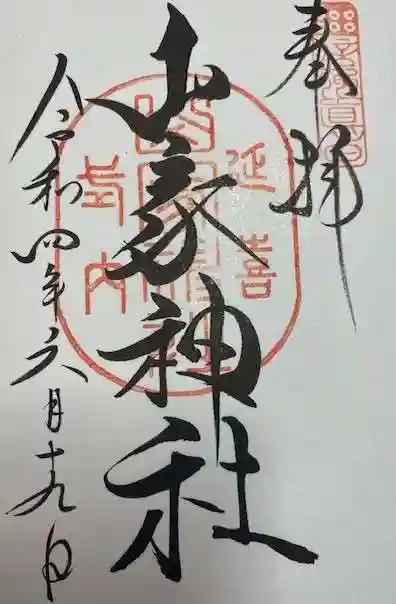 奉拝
山家神社
延喜
式内
令和四年六月十九日